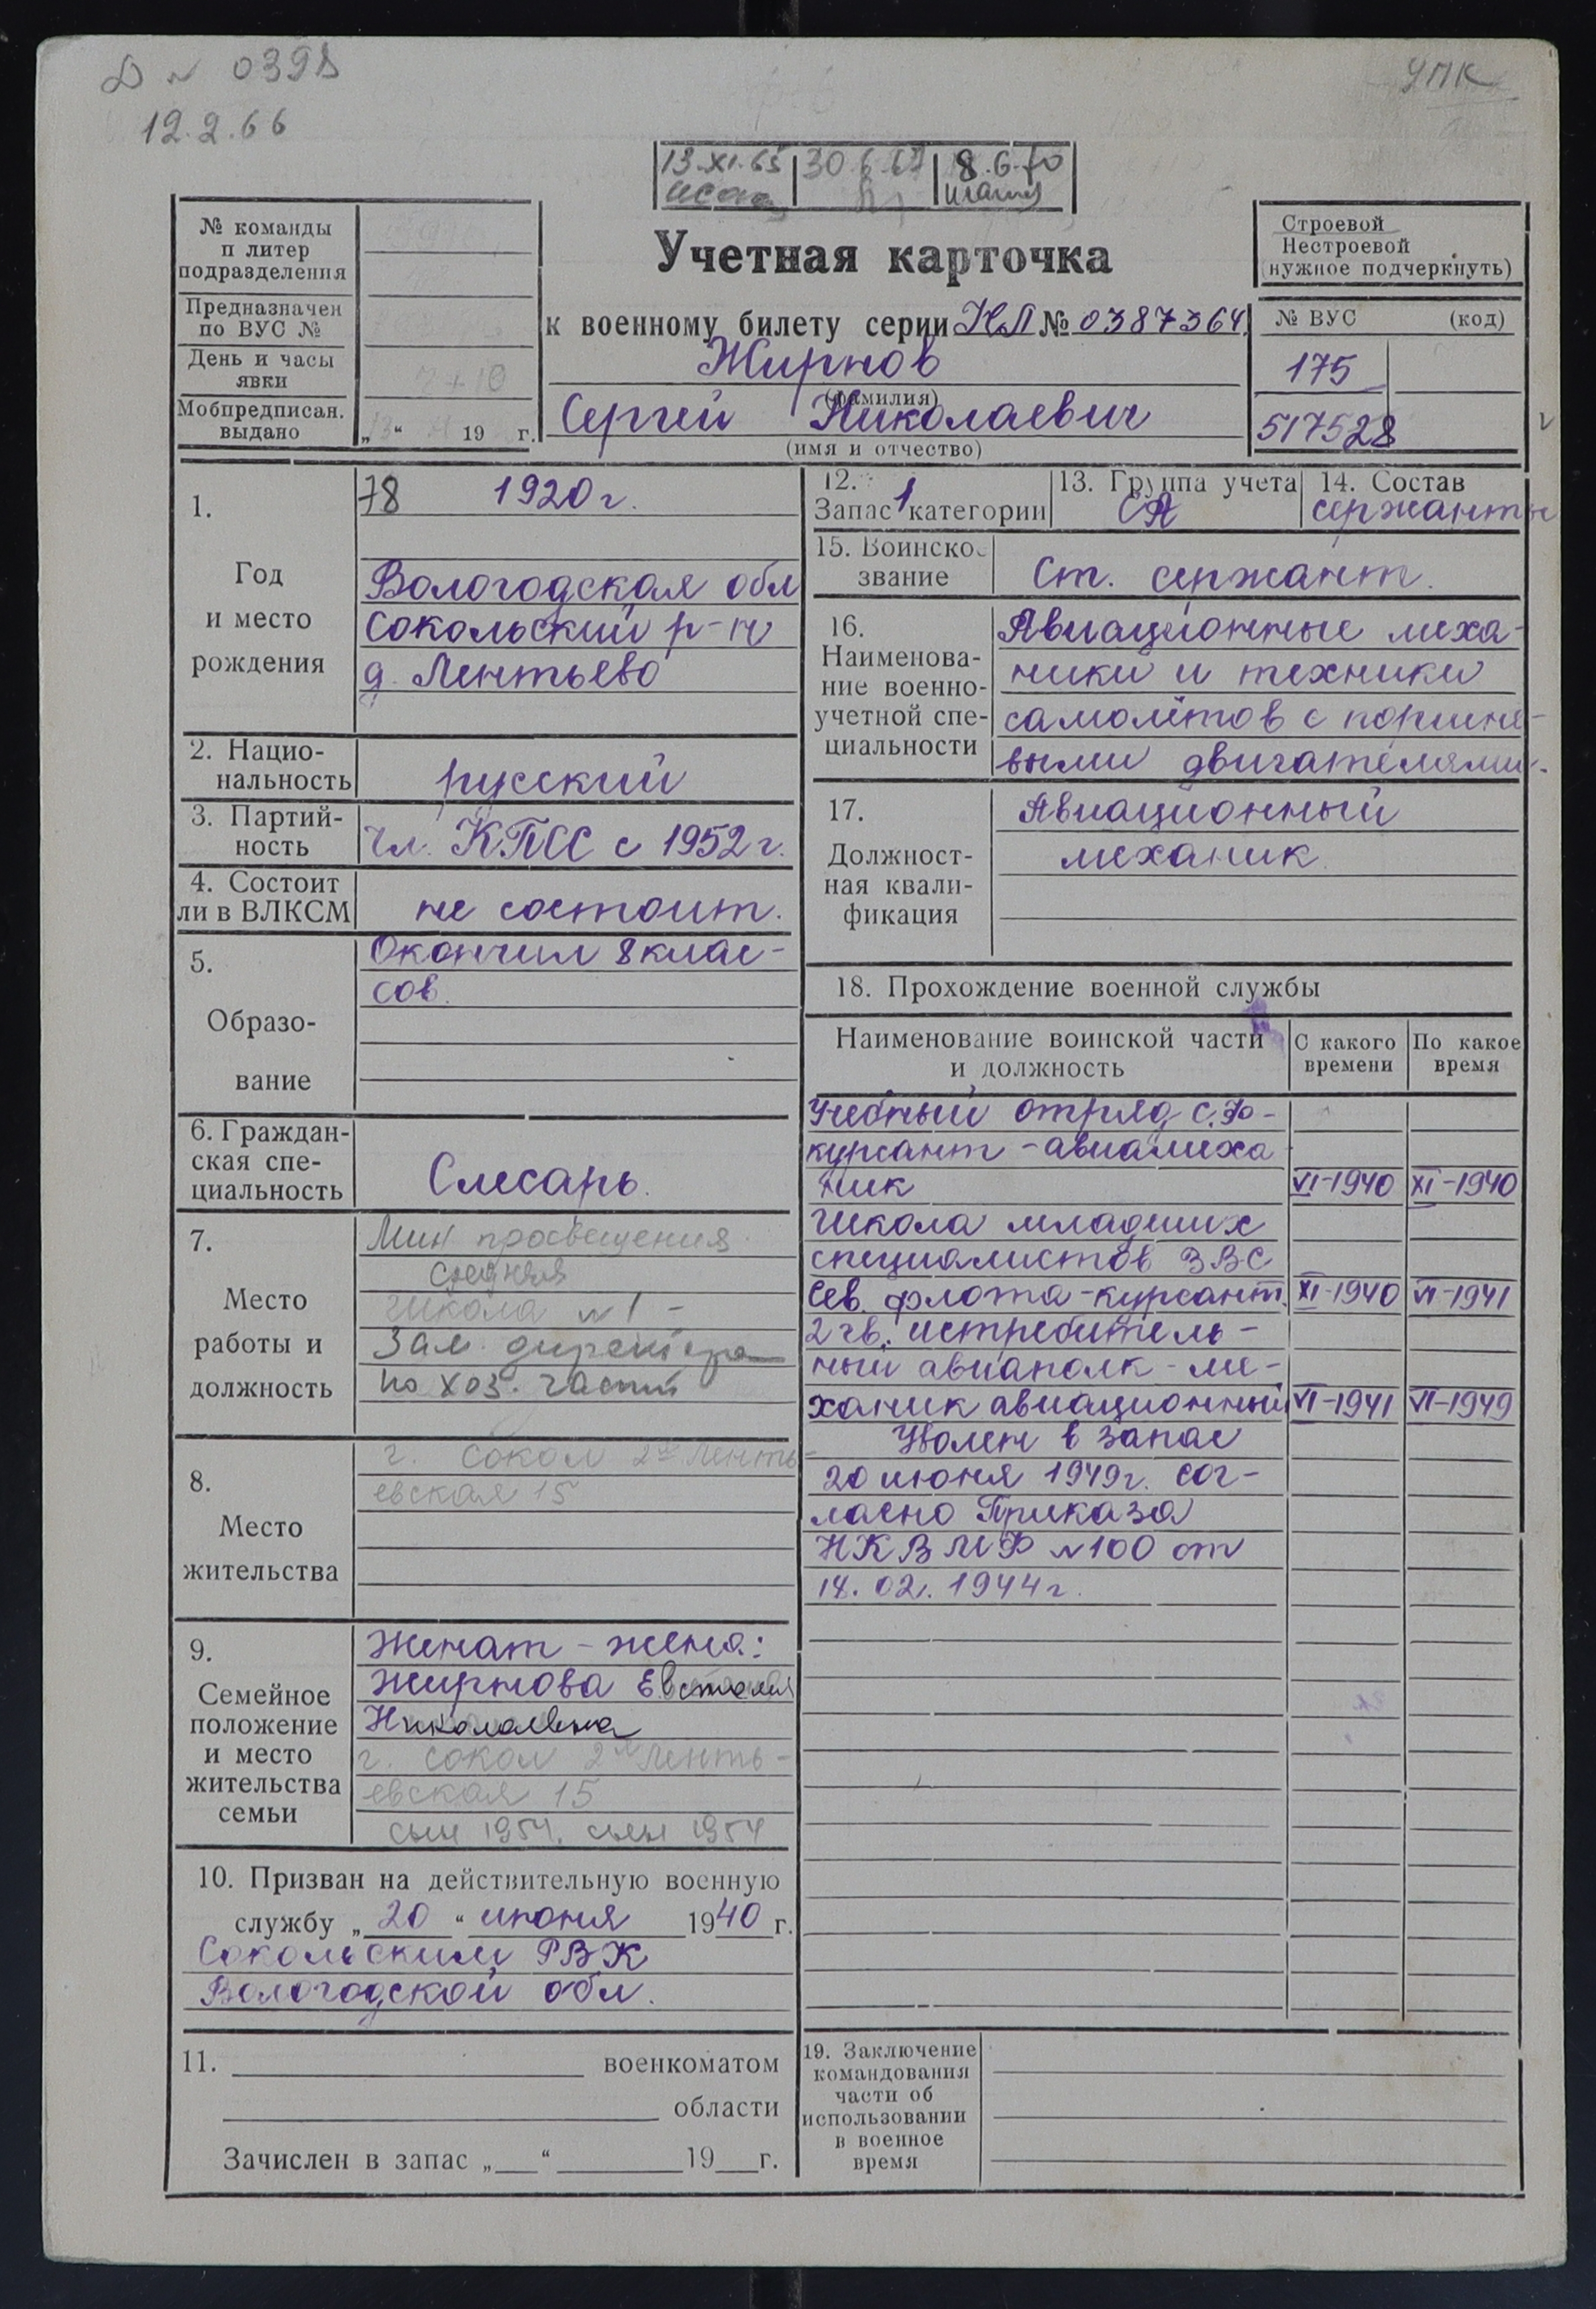 12.2.66
УПК
13.XI.65 30.6.67 8.6.70
№ команды
п литер
подразделения
Предназначен
по ВУС №
День и часы
явки
Мобпредписан.
выдано
„ “ 19 г.
Учетная карточка
к военному билету серии НЛ № 0387364
Жирнов
(фамилия)
Сергей Николаевич
(имя и отчество)
Строевой
Нестроевой
(нужное подчеркнуть)
№ ВУС (код)
175
517528
1.
Год
и место
рождения
78 1920г.
Вологодская обл
Сокольский р-н
д. Лентьево
2. Нацио-
нальность
русский
3. Партий-
ность
Чл. КПСС с 1952г.
4. Состоит
ли в ВЛКСМ
не состоит.
5.
Образо-
вание
Окончил 8 клас-
сов.
6. Граждан-
ская спе-
циальность
Слесарь.
7.
Место
работы и
должность
Мин просвещения
средняя
школа №1 -
Зам. директора
по хоз. части
8.
Место
жительства
г. Сокол 2ая Ленть-
евская 15
9.
Семейное
положение
и место
жительства
семьи
Женат - жена:
Жирнова Евстолия
Николаевна
г. Сокол 2я Ленть-
евская 15
сын 1954. сын 1954
10. Призван на действительную военную
службу „20“ июня 1940 г.
Сокольским РВК
Вологодской обл.
11. военкоматом
области
Зачислен в запас „ “ 19 г.
12.
Запас 1 категории
13. Группа учета
СА
14. Состав
сержанты
15. Воинское
звание
Ст. сержант.
16.
Наименова-
ние военно-
учетной спе-
циальности
Авиационные меха-
ники и техники
самолётов с поршне-
выми двигателями.
17.
Должност-
ная квали-
фикация
Авиационный
механик.
18. Прохождение военной службы
Наименование воинской части
и должность
С какого
времени
По какое
время
Учебный отряд С.Ф-
курсант - авиамеха-
ник VI-1940 XI-1940
Школа младших
специалистов ВВС
Сев. флота - курсант. XI-1940 VI-1941
2 гв. истребитель-
ный авиаполк - ме-
ханик авиационный VI-1941 VI-1949
Уволен в запас
20 июня 1949г. сог-
ласно Приказа
НКВМФ №100 от
18.02.1944г.
19. Заключение
командования
части об
использовании
в военное
время